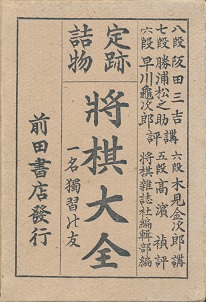 八段 阪田三吉 講
七段 勝浦松之助 評
六段 早川龜次郎
六段 木見金次郎 講
五段 高濱禎 評
將棋雜誌社編輯部編
定跡
詰物
將棋大全
一名獨習の友
前田書店發行